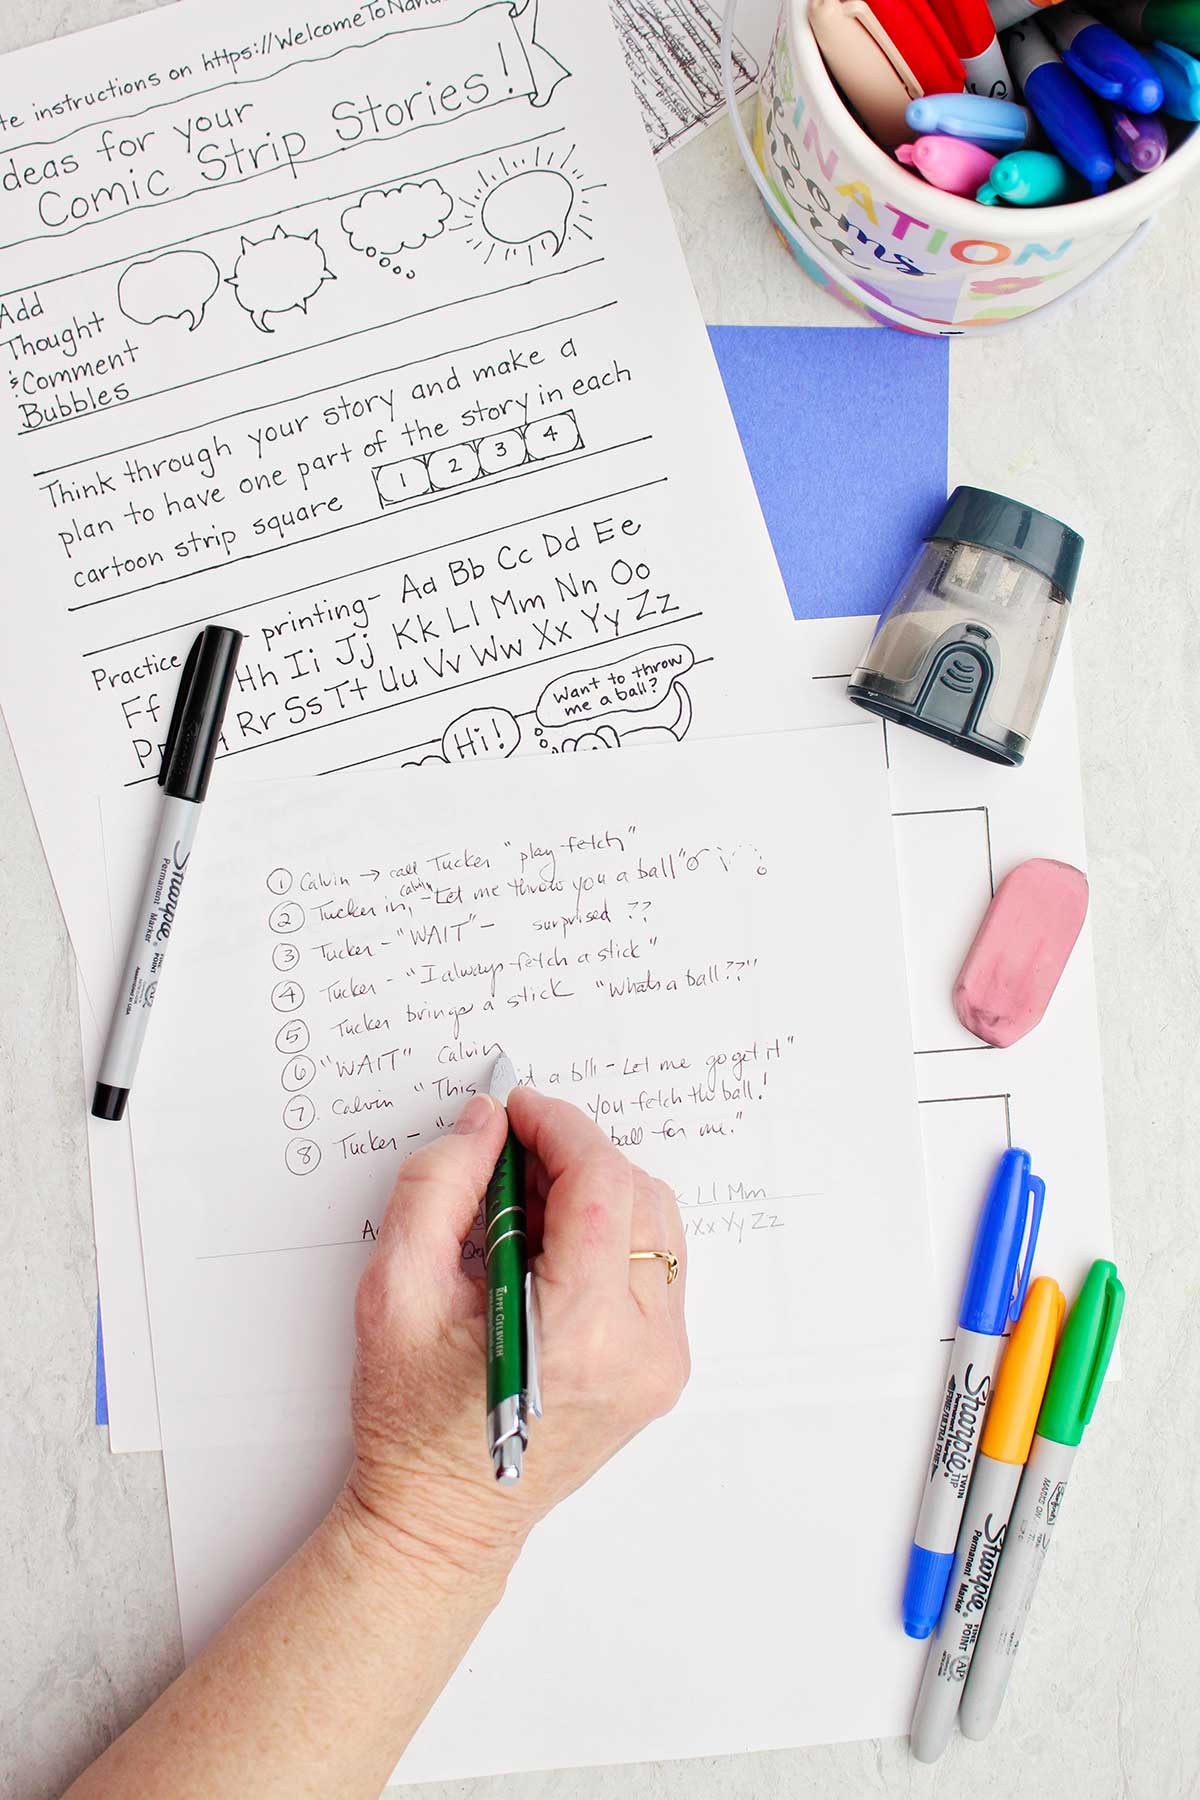 te instructions on https://WelcomeToNana
deas for your
Comic Strip Stories!
Add
Thought
& Comment
Bubbles
Think through your story and make a
plan to have one part of the story in each
cartoon strip square 1 2 3 4
Practice printing- Aa Bb Cc Dd Ee
Ff Hh Ii Jj Kk Ll Mm Nn Oo
Pp Rr Ss Tt Uu Vv Ww Xx Yy Zz
Hi!
Want to throw
me a ball?
① Calvin → call Tucker "play fetch"
② Tucker in, calvin - Let me throw you a ball"
③ Tucker - "WAIT" - surprised ??
④ Tucker - "I always fetch a stick"
⑤ Tucker brings a stick "Whats a ball??"
⑥ "WAIT" Calvin
⑦. Calvin "This a ball - Let me go get it"
you fetch the ball!
⑧ Tucker - " ball for me."
k Ll Mm
Xx Yy Zz
Sharpie
Permanent Marker
FINE POINT
AP
RIPPE GELBVIEH
INATION
blooms
here
Sharpie
Permanent Marker
FINE/ULTRA FINE
TWIN TIP
Sharpie
Permanent Marker
FINE POINT
AP